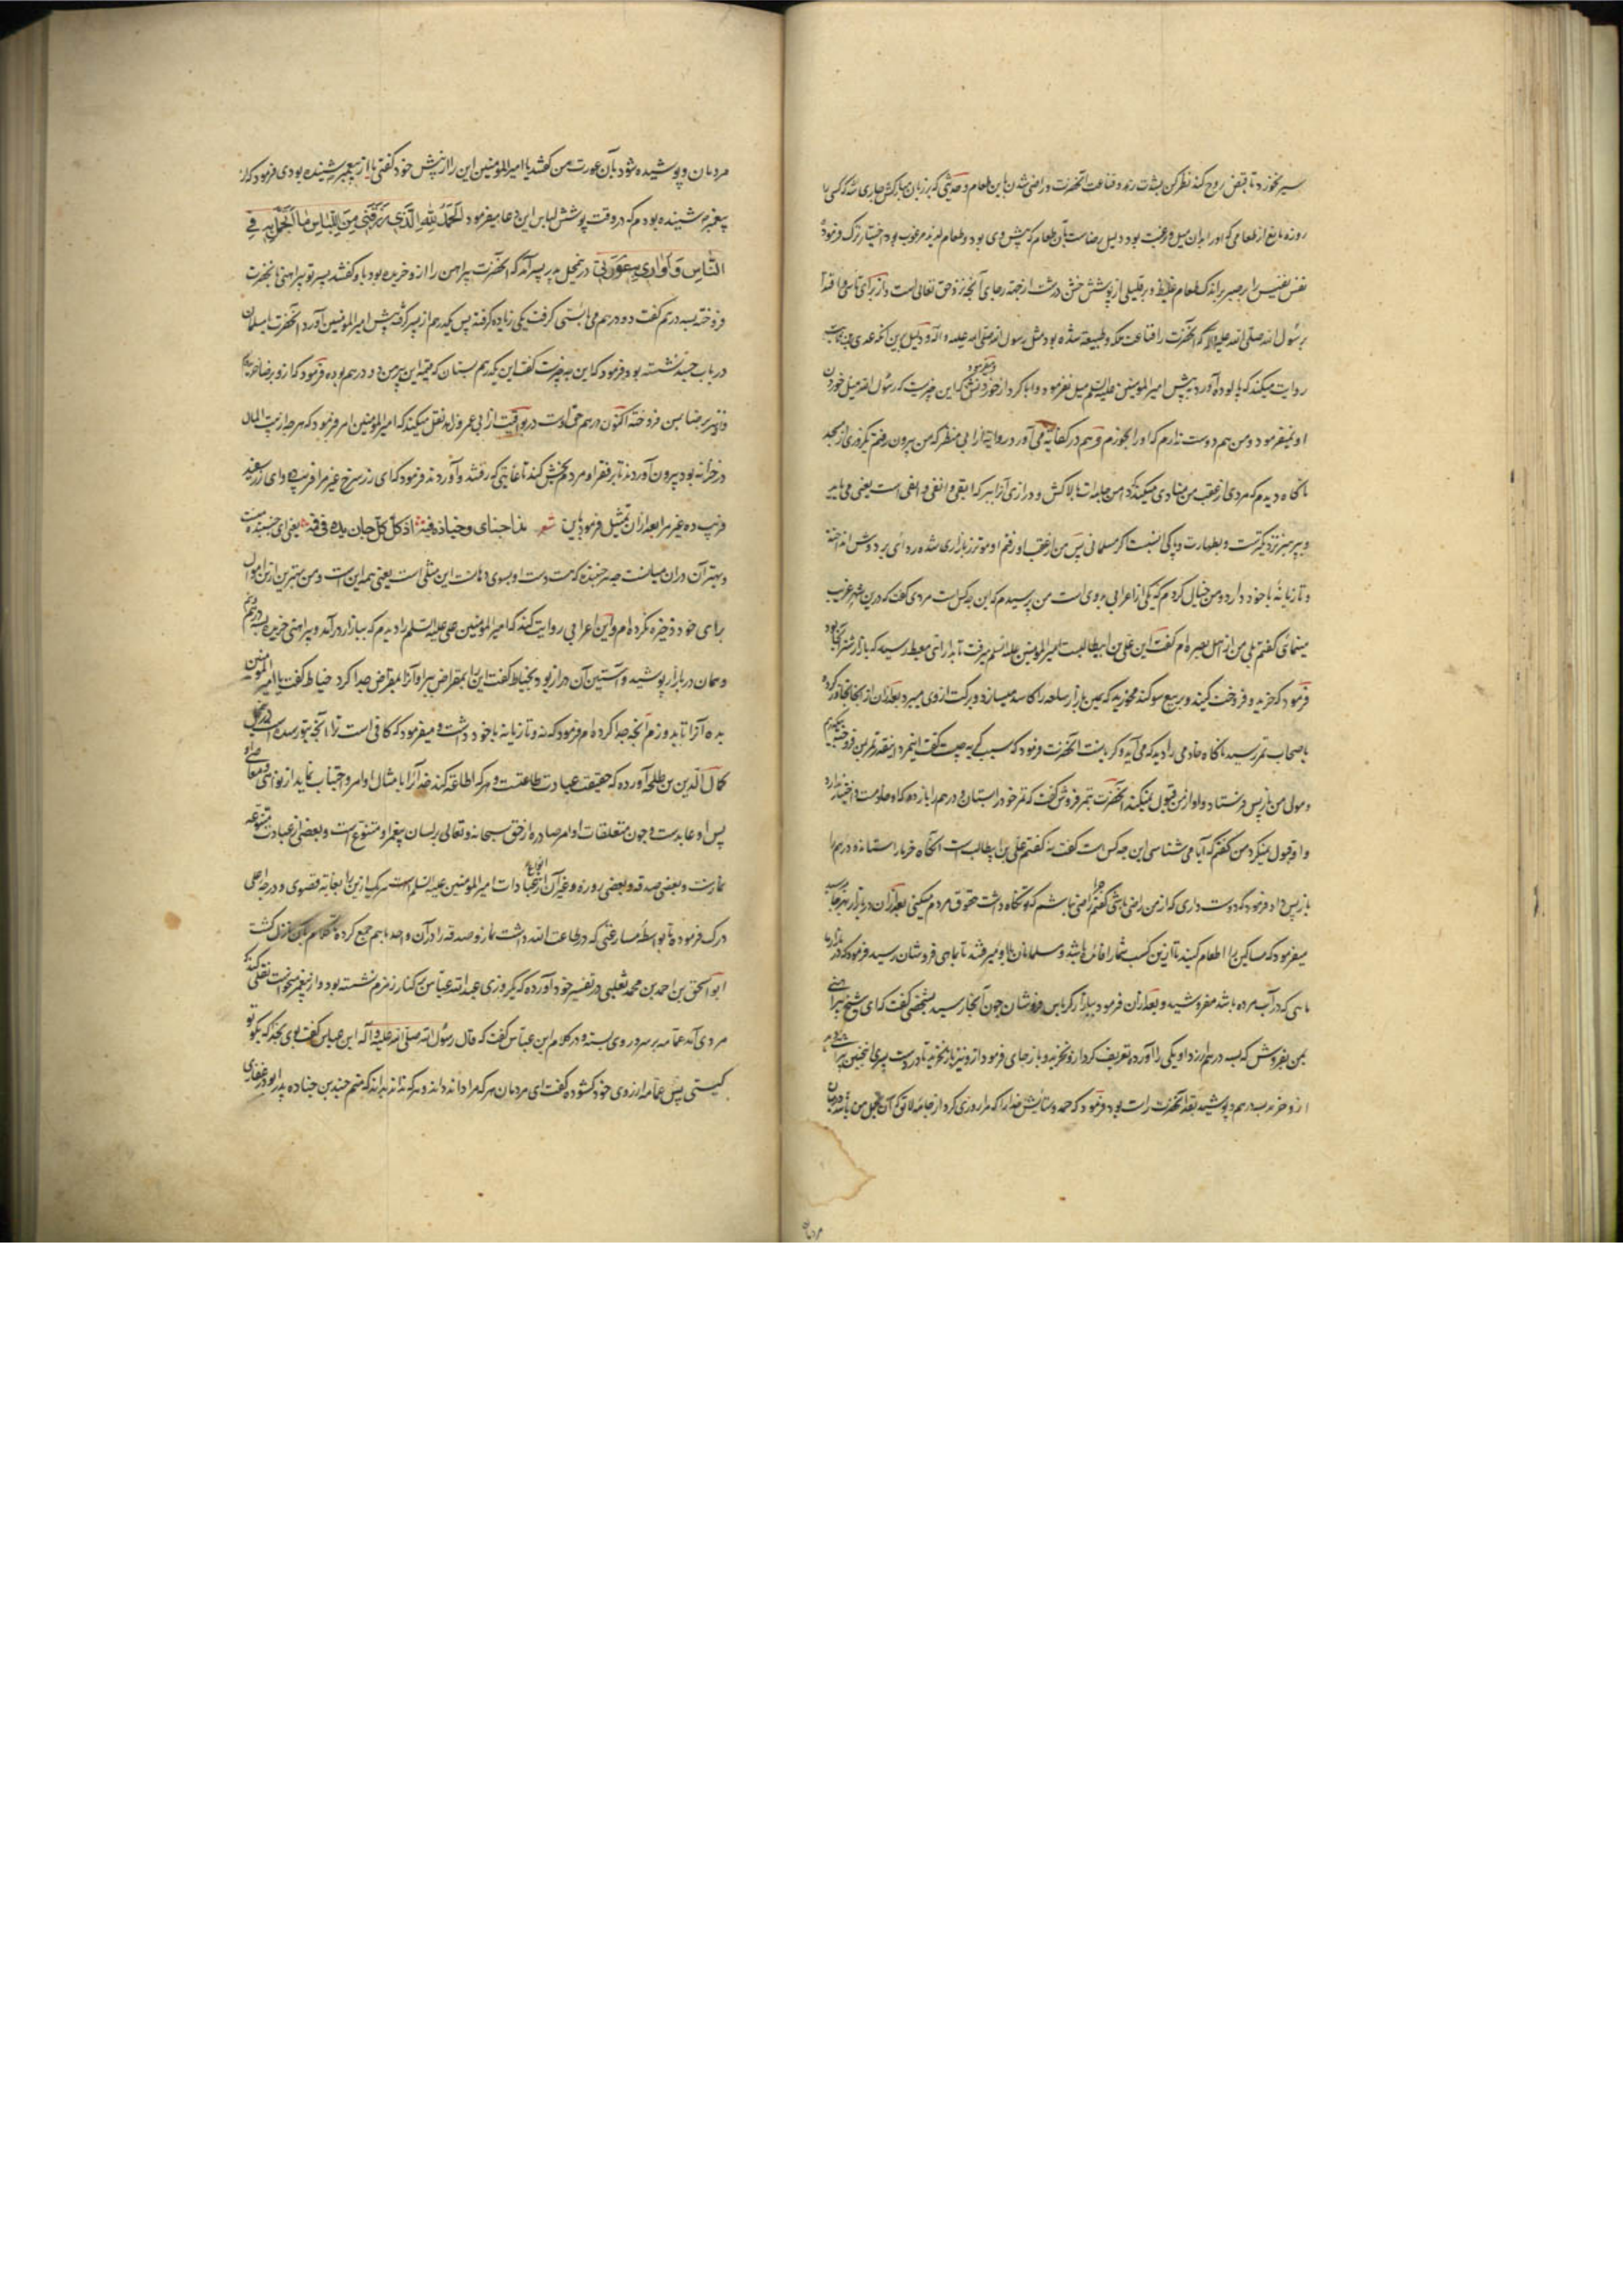 سیر نخورد تا قبض روح کند نظر کن بشدت زهد و قناعت آنحضرت و راضی شدن باین طعام و حدیثی که بر زبان مبارکش جاری شد که کسی را
روزه مانع از طعامی که او را بدان میل و رغبت بود دلیل رضاست بآن طعام که پیش وی بود و طعام لذیذ مرغوب بود اختیار ترک فرموده
نفس نفیس را بر صبر بر اندک طعام غلیظ و بر قلیلی از پوشش خشن درشت از جهة رجای آنچه نزد حق تعالی است و از برای تاسی و اقتدا
برسول الله صلی الله علیه و آله که آنحضرت را قناعت ملکه و طبیعة شده بود مثل رسول الله صلی الله علیه و آله و دلیل برین آنکه عدی بن ثابت
روایت میکند که پالوده آوردند پیش امیر المومنین علیه السلم میل نفرمود و ابا کرد از خوردنش و میفرمود که این چیزیست که رسول الله میل خوردن
او نمیفرمود و من هم دوست ندارم که او را بخورم و هم در کفایة می آورد روایة از ابی مطر که من بیرون رفتم یکروزی از مسجد
ناگاه دیدم که مردی از عقب من منادی میکند که دامن جامه‌ات بالا کش و درازی آنرا ببر که ابقی و انقی و اتقی است یعنی می پاید
و بپرهیز نزدیکترست و بطهارت و پاکی انسبت اگر مسلمانی پس من از عقب او رفتم او موتزر بازاری شده ردائی بر دوش انداخته
و تازیانهٔ با خود دارد و من خیال کردم که یکی از اعرابی بدوی است من پرسیدم که این چه کس است مردی گفت که درین شهر غریب
مینمائی گفتم بلی من از اهل بصره‌ام گفت این علی بن ابیطالبست امیر المومنین علیه السلم میرفت تا بدار ابی معیط رسید که بازار شتر آنجا بود
فرمود که خرید و فروخت کنید و بر بیع سوکند مخورید که یمین بازار سلعه را کاسد میسازد و برکت از وی میبرد بعد از آن از آنجا تجاوز کرده
باصحاب تمر رسید ناگاه خادمی را دید که می آید و گریانست آنحضرت فرمود که سبب گریه چیست گفت اینمرد اینقدر تمر بمن فروخت بیکدرم
و مولی من باز پس فرستاد و او از من قبول نمیکند آنحضرت بتمر فروش گفت که تمر خود را بستان و درهم را باز ده که او خادمست و اختیار ندارد
و او قبول نمیکرد من گفتم که آیا می شناسی این چه کس است گفت نه گفتم علی بن ابیطالب است آنگاه خرما را ستاند و درهم را
باز پس داد و فرمود که دوست داری که از من راضی باشی گفتم چرا راضی نباشم که تو نگاه داشت حقوق مردم میکنی بعد از آن در بازار بهر جا میرسید
میفرمود که مساکین را اطعام کنید تا ازین کسب شما را فائده باشد و مسلمانان با او میرفتند تا بماهی فروشان رسید فرمود که در بازار ما
ماهی که در آب مرده باشد مفروشید و بعد از آن فرمود ببازار کرباس فروشان چون آنجا رسید بشخصی گفت که ای شیخ پیراهنی
بمن بفروش که بسه درهم ارزد او یکی را آورد و تعریف کرد ازو نخرید و باز جای فرمود ازو نیز نخرید تا در دست پسری اینچنین پیراهنی
ازو خرید بسه درهم و پوشید بقد آنحضرت راست بود فرمود که حمد و ستایش خدا را که مرا روزی کرد از جامه لایق که آن تجمل من باشد در میان
مردمان
مردمان و پوشیده شود بآن عورت من گفتند یا امیر المومنین این را از پیش خود گفتی یا از پیغمبر شنیده بودی فرمود که از
پیغمبر شنیده بودم که در وقت پوشش لباس این دعا میفرمود الحمد لله الذی رزقنی من اللباس ما اتجمل به فی
الناس و اواری به عورتی در تمجیل پدر پسر آمد که آنحضرت پیراهن را ازو خریده بود باو گفتند پسر تو پیراهنی بآنحضرت
فروخته بسه درهم گفت دو درهم می بایستی گرفت یکی زیاده گرفته پس یکدرهم از پسر گرفته پیش امیر المومنین آورد آنحضرت با مسلمانان
در باب جید نشسته بود فرمود که این چه چیزیست گفت این یکدرهم بستان که قیمة این پیرهن دو درهم بوده فرمود که ازو برضا خریدم
و او نیز برضا بمن فروخته اکنون درهم حق اوست در یواقیت از ابی عمر زاهد نقل میکند که امیر المومنین امر فرمود که هر چه از بیت المال
در خزانه بود بیرون آوردند تا بر فقرا و مردم بخش کند تا غایتی که رفتند و آوردند فرمود که ای زر سرخ غیر مرا فریب ده و ای زر سفید
فریب ده غیر مرا بعد از آن تمثیل فرمود باین شعر هذا جنای و خیاره فیه اذ کل جان یده فی فیه یعنی ای چیننده منست
و بهتر آن در آن میانست چه هر چیننده که هست دست او بسوی دهانست این مثلی است یعنی همه این است و من بهترین ازین اموال
برای خود ذخیره نکرده‌ام و ابن اعرابی روایت کند که امیر المومنین علی علیه السلم را دیدم که ببازار در آمد و پیراهنی خرید بسه درهم و نیم
و همان در بازار پوشید و آستین آن دراز بود بخیاط گفت این را بمقراض ببر او آنرا بمقراض جدا کرد خیاط گفت یا امیر المومنین
بده آنرا تا بدوزم آنچه جدا کرده‌ام فرمود که نه و تازیانه با خود داشت و میفرمود که کافی است ترا آنچه بتو رسیده است
کمال الدین بن طلحه آورده که حقیقت عبادت طاعتست و هر که اطاعة کند خدا را بامتثال اوامر و اجتناب نماید از نواهی و معاصی
پس او عابدست و چون متعلقات اوامر صادره از حق سبحانه و تعالی بر لسان پیغمبر او متنوع است و بعضی از عبادت متنوعه
نمازست و بعضی صدقه و بعضی روزه و غیر آن از انواع عبادات امیر المومنین علیه السلم است هر یک ازین را بغایة قصوی و درجهٔ اعلی
درک فرموده تا بواسطهٔ مسارعتی که در طاعت الله داشت نماز و صدقه را در آن واحد با هم جمع کرده نازل گشت
ابو اسحق بن احمد بن محمد ثعلبی در تفسیر خود آورده که یکروزی عبد الله عباس بر کنار زمزم نشسته بود و از پیغمبر نقل میکرد
مردی آمد عمامه بر سر و روی بسته و در کلام ابن عباس گفت که قال رسول الله صلی الله علیه و آله ابن عباس گفت بوی بخدا که بگو تو
کیستی پس عمامه از روی خود گشوده گفت ای مردمان هر که مرا داند داند و هر که نداند بداند که منم جندب بن جناده بدری ابوذر غفاری